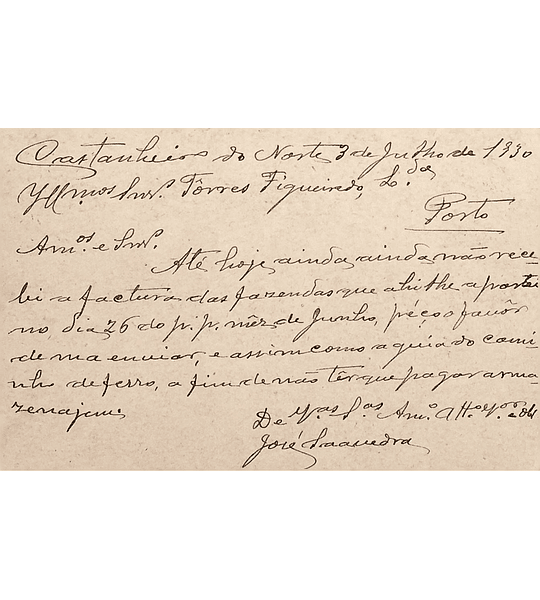 Castanheiro do Norte 3 de Julho de 1930
Yllmos Snrs. Tôrres Figueiredo, L.das
Porto
Amos. e Snrs.
Até hoje ainda ainda não rece-
bi a factura das fazendas que ahi lhe apartei
no dia 26 do p. p. mêz de Junho, péço o favôr
de ma enviar, e assim como a guia do cami-
nho de ferro, a fim de não têr que pagar arma-
zenajem.
De V.as S.as Amo. Atto. e
José Saavedra